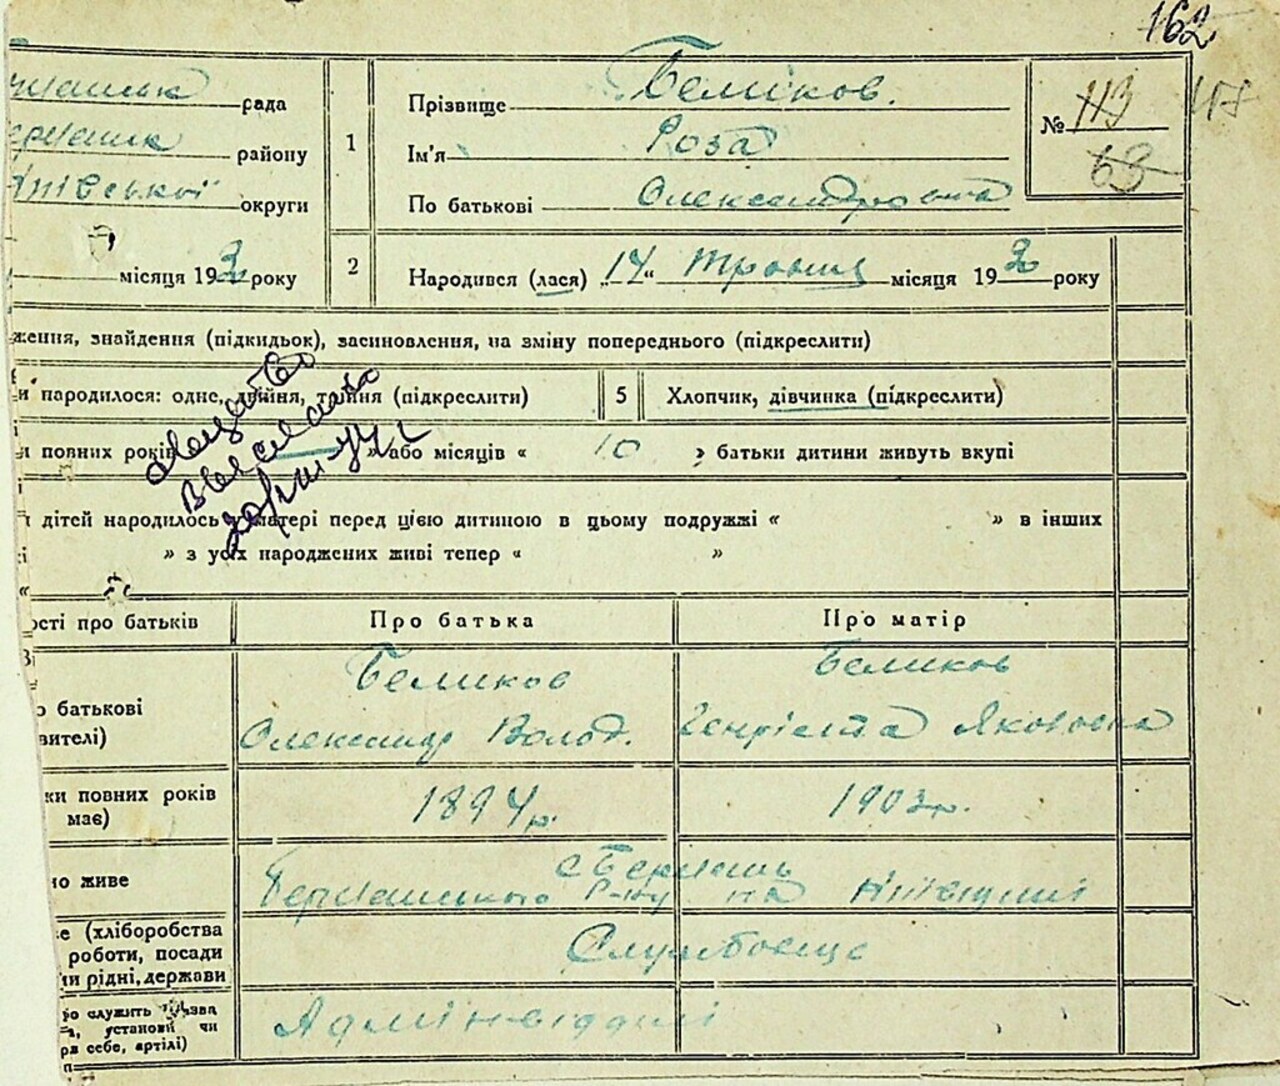 162
рада
району
округи
місяця 193 року
1
Прізвище Беліков.
Ім'я Роза
По батькові Олександровна
№ 113
63
2
Народився (лася) „14“ травня місяця 193 року
ження, знайдення (підкидьок), засиновлення, на зміну попереднього (підкреслити)
и народилося: одне, двійня, трійня (підкреслити)
5
Хлопчик, дівчинка (підкреслити)
и повних років » або місяців « 10 » батьки дитини живуть вкупі
дітей народилось у матері перед цією дитиною в цьому подружжі « » в інших
» з усіх народжених живі тепер « »
ості про батьків
Про батька
Про матір
о батькові
вителі)
Беликов
Олександр Волод.
Беликов
Генрієта Якововна
ки повних років
має)
1894р.
1903р.
но живе
с
р-ну на
е (хліборобства
роботи, посади
чи рідні, держави
Службовець
ро служить назва
а, установи чи
ря себе, артілі)
Адмінвідділі